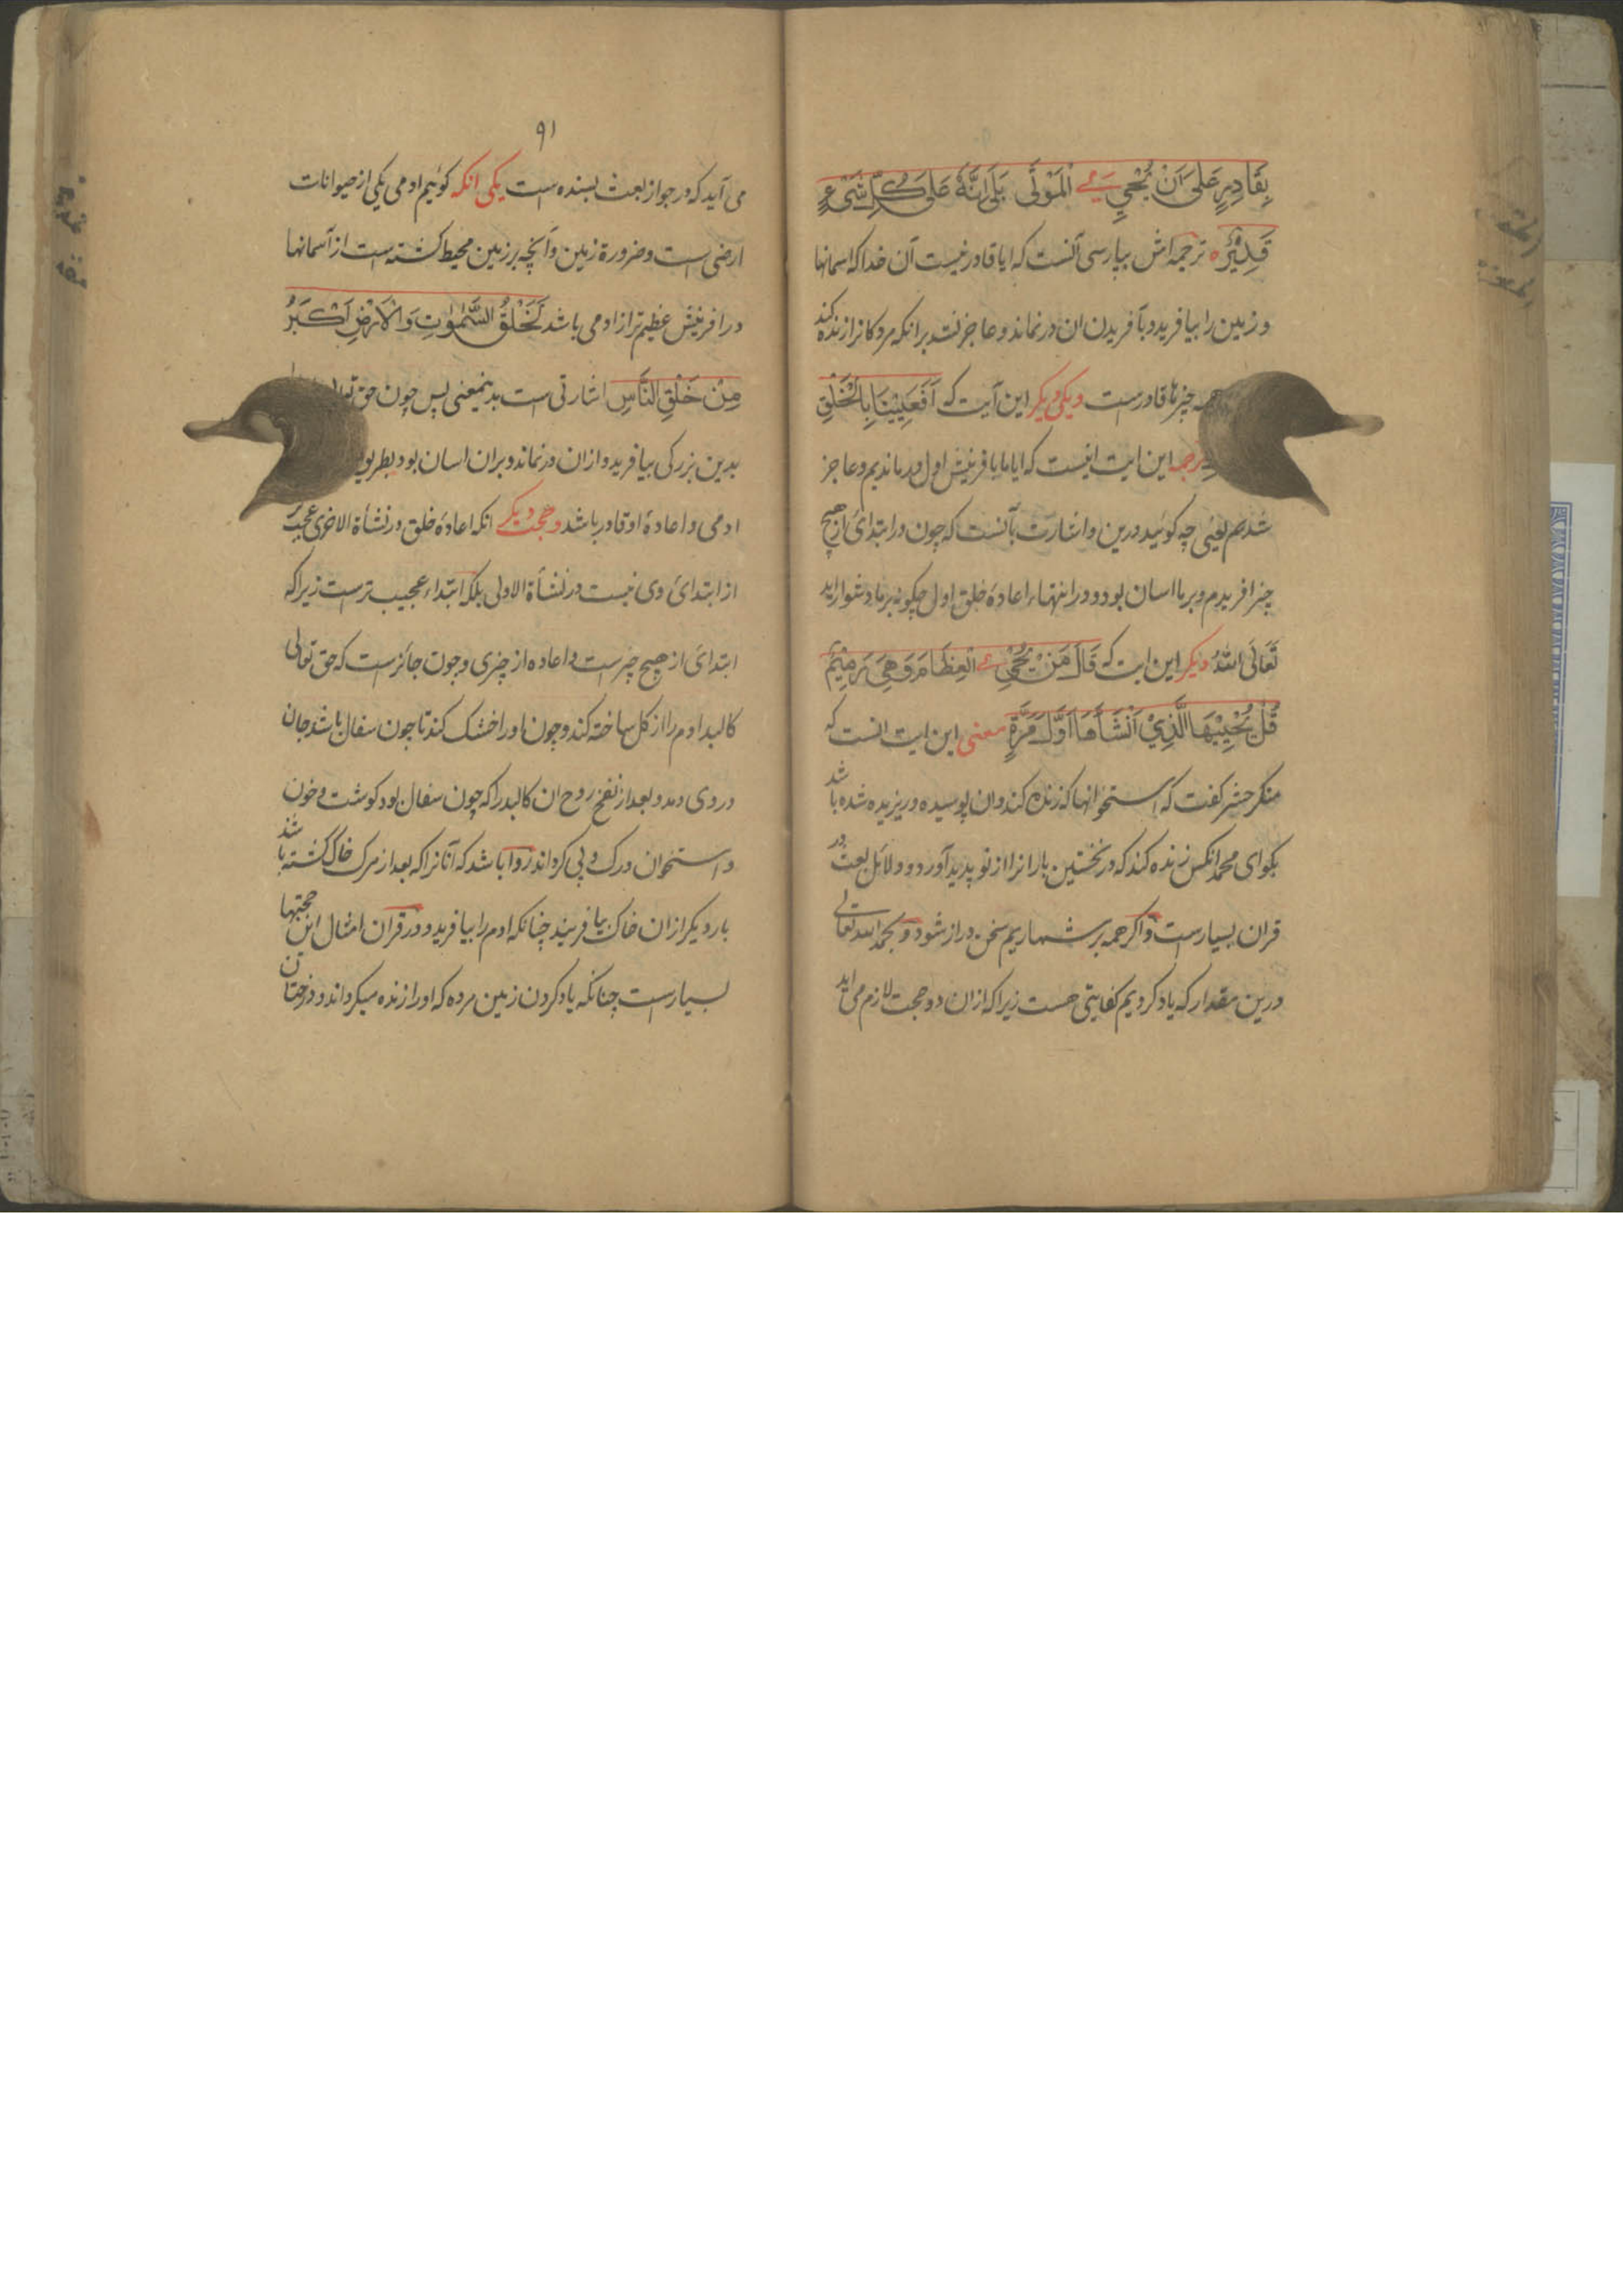 بِقَادِرٍ عَلىٰ اَنْ یُّحْیِیَ الْمَوْتٰی بَلٰی اِنَّهٗ عَلٰی كُلِّ شَیْءٍ
قَدِیْرٌ ه ترجمه اش بپارسی آنست که ایا قادر نیست آن خدا که اسمانها
و زمین را بیافرید و بآفریدن ان درنماند و عاجز نشد برانکه مردکانرا زنده کند
همه چیزها قادرست ویکی دیکر این آیت که اَفَعَیِیْنَا بِالْخَلْقِ
ترجمه این ایت اینست که ایا ما بافرینش اول درماندیم و عاجز
شدیم یعنی چه کوئید درین و اشارت بآنست که چون در ابتدائ از هیچ
چیز افریدم و برما اسان بود و در انتهاء اعادۀ خلق اول چکونه برما دشوار اید
تَعَالَی اللهُ دیکر این ایت که قَالَ مَنْ یُّحْیِ الْعِظَامَ وَهِیَ رَمِیْمٌ
قُلْ یُحْیِیْهَا الَّذِیْ اَنْشَأَهَا اَوَّلَ مَرَّةٍ معنی این ایت انست که
منکر حشر کفت که استخوانها که زنده کند و ان پوسیده و ریزیده شده باشد
بکو ای محمد انکس زنده کند که در نخستین بار انرا از نو پدید آورد و دلائل بعث در
قران بسیارست و اکر همه بر شماریم سخن دراز شود و بحمد الله تعالی
درین مقدار که یاد کردیم کفایتی هست زیرا که ازان دو حجت لازم می اید
۹۱
می آید که در جواز بعث بسنده است یکی انکه کوئیم ادمی یکی از حیوانات
ارضی است و ضرورة زمین و آنچه بر زمین محیط کشته است از آسمانها
در افرینش عظیم تر از ادمی باشد لَخَلْقُ السَّمٰوٰتِ وَالْاَرْضِ اَكْبَرُ
مِنْ خَلْقِ النَّاسِ اشارتی است بدینمعنی پس چون حق
بدین بزرکی بیافرید و ازان درنماند و بران اسان بود بطریق
ادمی و اعادۀ او قادر باشد و حجت دیکر انکه اعادۀ خلق در نشأة الاخری عجیب تر
از ابتدائ وی نیست در نشأة الاولی بلکه ابتداء عجیب ترست زیرا که
ابتدائ از هیچ چیز است و اعاده از چیزی و چون جائز است که حق تعالی
کالبد ادم را از کل ساخته کند و چون او را خشک کند تا چون سفال باشد جان
در وی دمد و بعد از نفخ روح ان کالبد را که چون سفال بود کوشت و خون
و استخوان و رک و پی کرداند روا باشد که آنانرا که بعد از مرک خاک کشته باشند
بار دیکر ازان خاک بیافریند چنانکه ادم را بیافرید و در قران امثال این حجتها
بسیارست چنانکه یاد کردن زمین مرده که او را زنده میکرداند و درختان